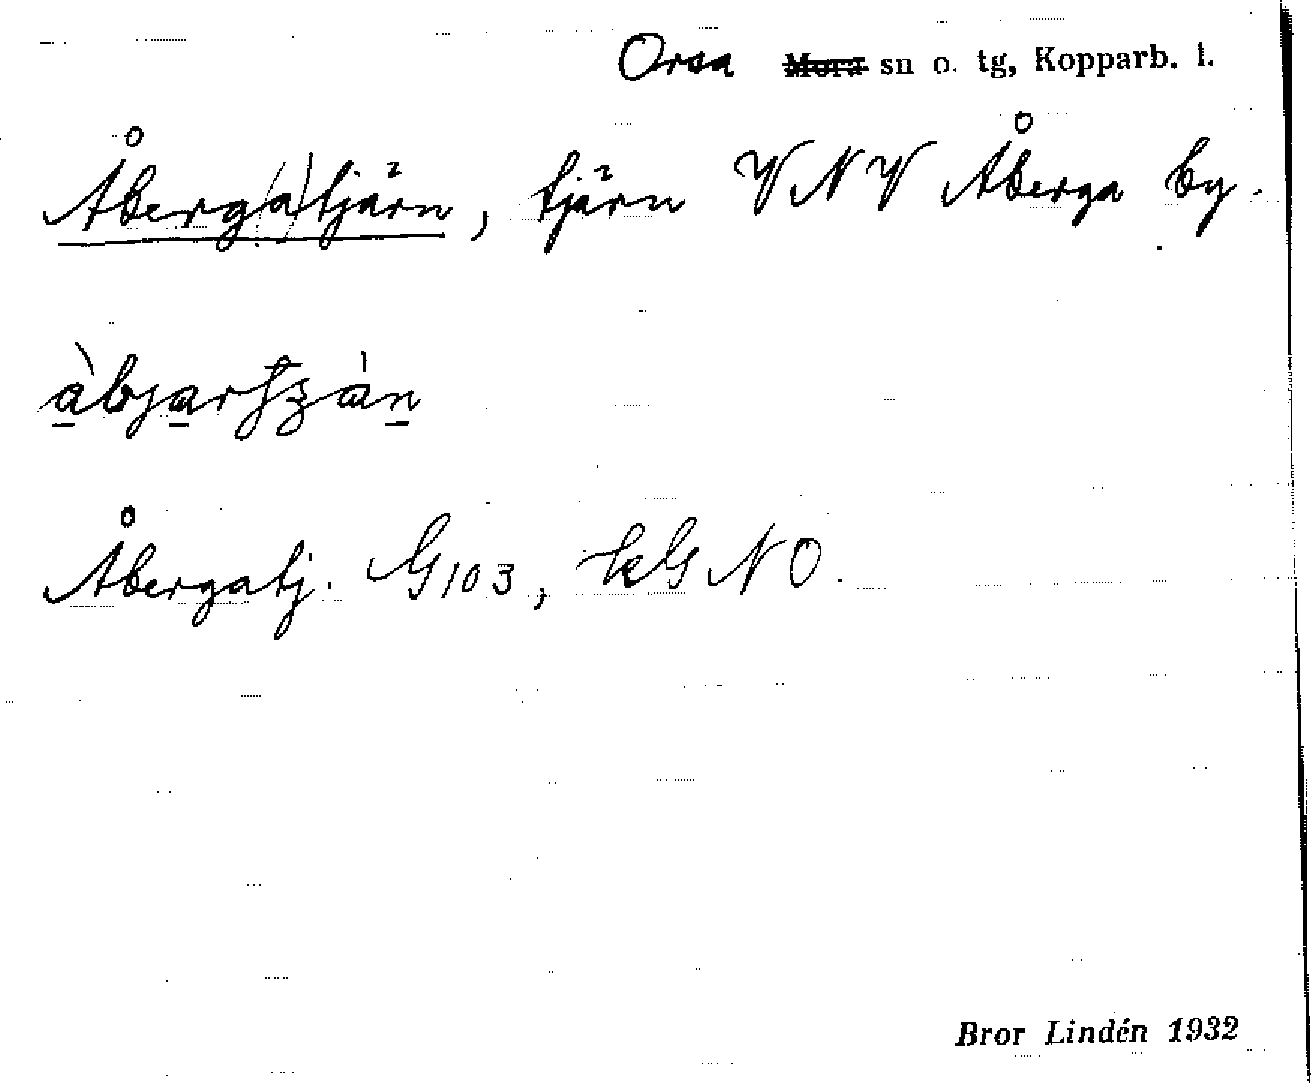 Orsa Mora sn o. tg, Kopparb. l.
Åberg(a)tjärn, tjärn VNV Åberga by.
Åbergatj. G103, kG NO.
Bror Lindén 1932